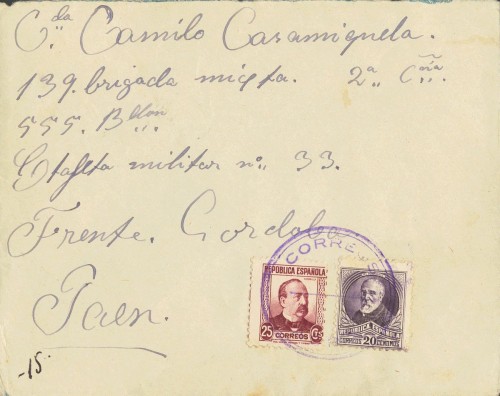 Cda Camilo Casamiquela.
139. brigada micsta. 2ª Cñia..
555. Bllon
Etafta militar nº.. 33.
Frente. Cordoba
Jaen.
-15.
CORREOS
REPUBLICA ESPAÑOLA
25 Cts
CORREOS
REPUBLICA ESPAÑOLA
CORREOS 20 CENTIMOS